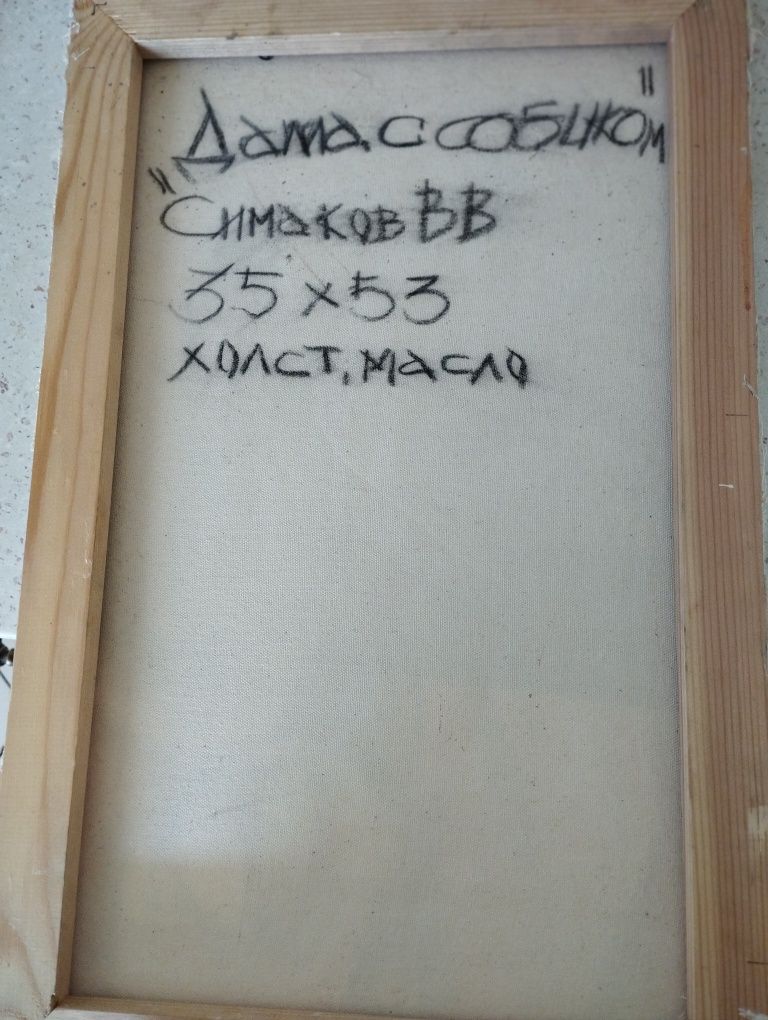 "Дама с собчком"
Симаков ВВ
35х53
холст, масло